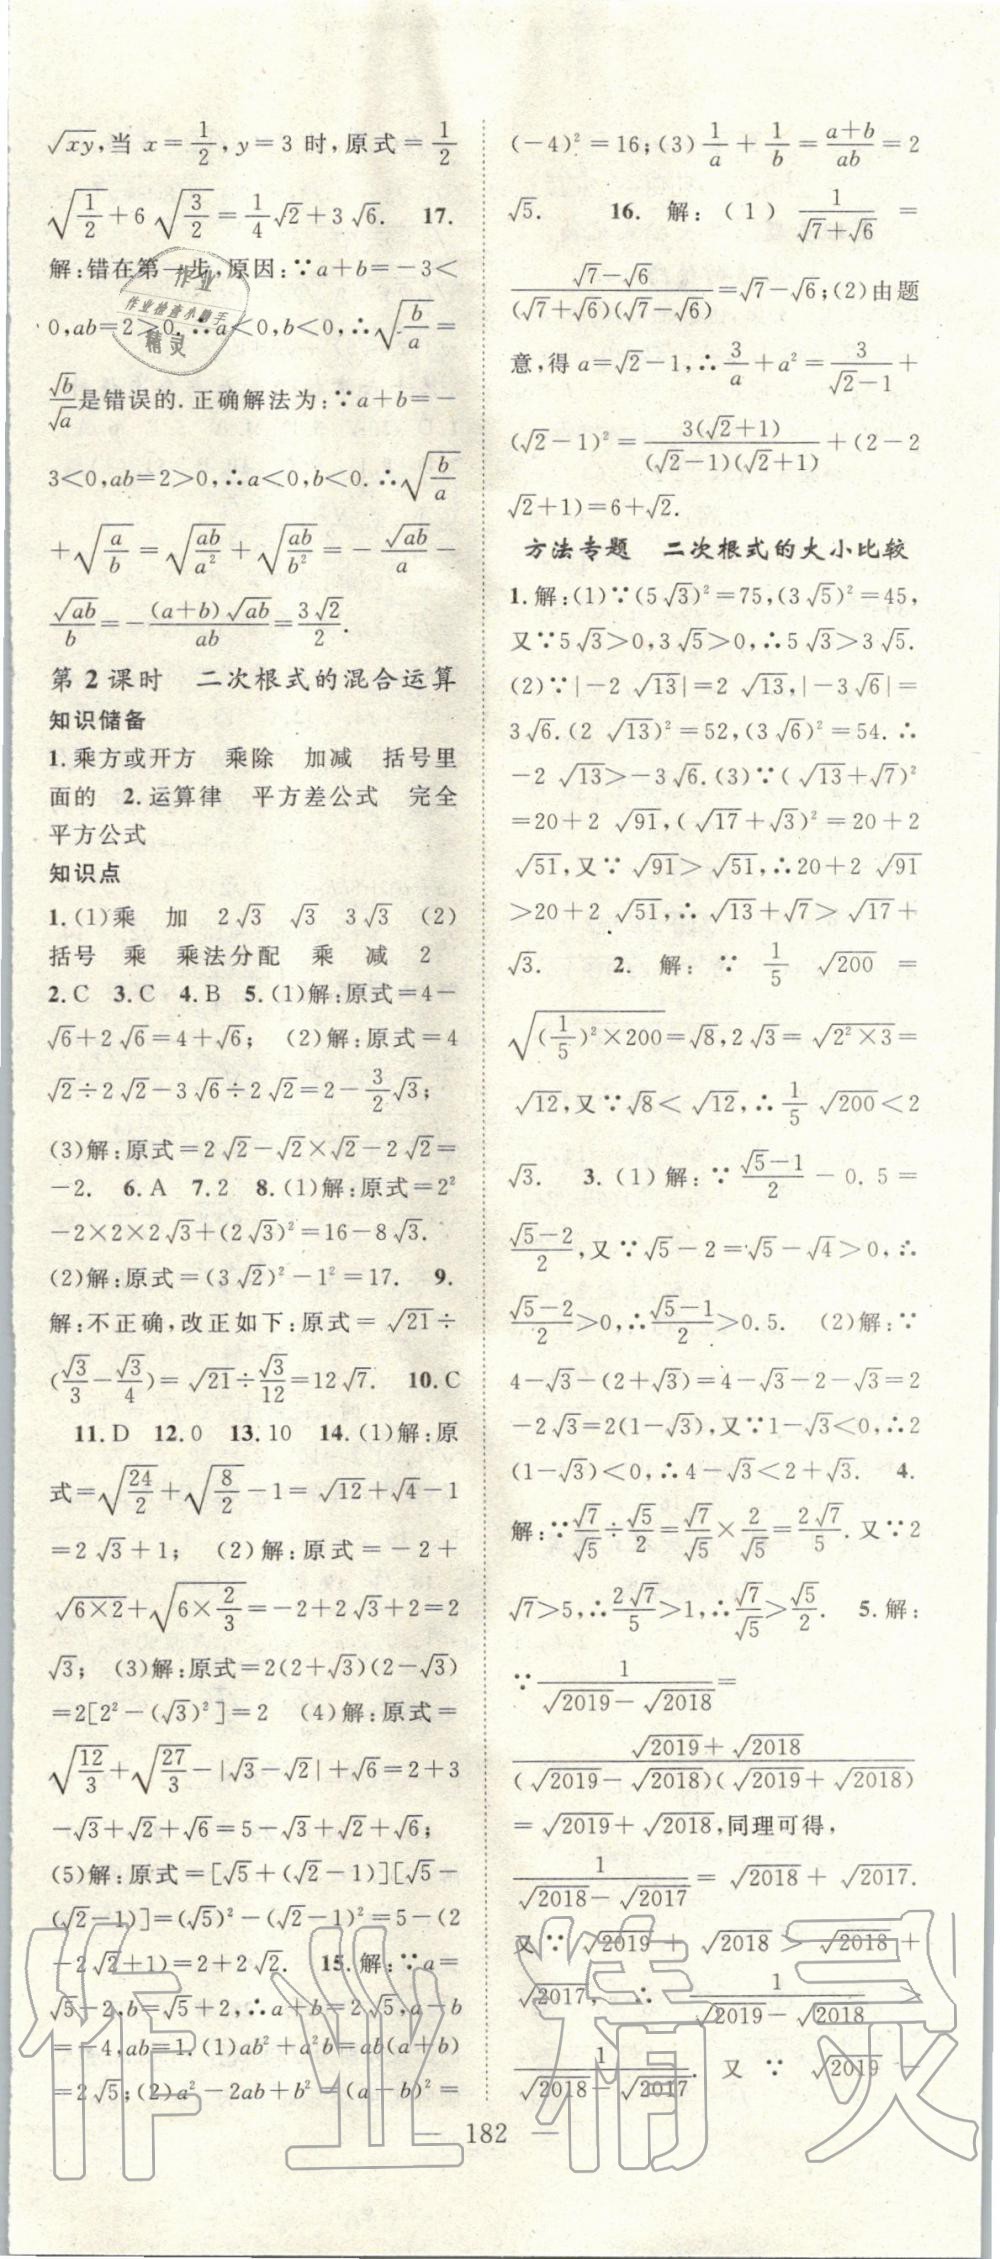 √xy,当 x=1/2,y=3 时,原式=1/2
√(1/2)+6√(3/2)=1/4√2+3√6. 17.
解:错在第一步,原因:∵a+b=-3<
0,ab=2>0,∴a<0,b<0,∴√(b/a)=
√b/√a是错误的.正确解法为:∵a+b=-
3<0,ab=2>0,∴a<0,b<0.∴√(b/a)
+√(a/b)=√(ab/a²)+√(ab/b²)=-√ab/a-
√ab/b=-(a+b)√ab/ab=3√2/2.
第2课时 二次根式的混合运算
知识储备
1.乘方或开方 乘除 加减 括号里
面的 2.运算律 平方差公式 完全
平方公式
知识点
1.(1)乘 加 2√3 √3 3√3 (2)
括号 乘 乘法分配 乘 减 2
2.C 3.C 4.B 5.(1)解:原式=4-
√6+2√6=4+√6; (2)解:原式=4
√2÷2√2-3√6÷2√2=2-3/2√3;
(3)解:原式=2√2-√2×√2-2√2=
-2. 6.A 7.2 8.(1)解:原式=2²
-2×2×2√3+(2√3)²=16-8√3.
(2)解:原式=(3√2)²-1²=17. 9.
解:不正确,改正如下:原式=√21÷
(√3/3-√3/4)=√21÷√3/12=12√7. 10.C
11.D 12.0 13.10 14.(1)解:原
式=√(24/2)+√(8/2)-1=√12+√4-1
=2√3+1; (2)解:原式=-2+
√(6×2)+√(6×2/3)=-2+2√3+2=2
√3; (3)解:原式=2(2+√3)(2-√3)
=2[2²-(√3)²]=2 (4)解:原式=
√(12/3)+√(27/3)-|√3-√2|+√6=2+3
-√3+√2+√6=5-√3+√2+√6;
(5)解:原式=[√5+(√2-1)][√5-
(√2-1)]=(√5)²-(√2-1)²=5-(2
-2√2+1)=2+2√2. 15.解:∵a=
√5-2,b=√5+2,∴a+b=2√5,a-b
=-4,ab=1.(1)ab²+a²b=ab(a+b)
=2√5;(2)a²-2ab+b²=(a-b)²=
(-4)²=16;(3)1/a+1/b=(a+b)/ab=2
√5. 16.解:(1)1/(√7+√6)=
(√7-√6)/((√7+√6)(√7-√6))=√7-√6;(2)由题
意,得a=√2-1,∴3/a+a²=3/(√2-1)+
(√2-1)²=3(√2+1)/((√2-1)(√2+1))+(2-2
√2+1)=6+√2.
方法专题 二次根式的大小比较
1.解:(1)∵(5√3)²=75,(3√5)²=45,
又∵5√3>0,3√5>0,∴5√3>3√5.
(2)∵|-2√13|=2√13,|-3√6|=
3√6.(2√13)²=52,(3√6)²=54.∴
-2√13>-3√6.(3)∵(√13+√7)²
=20+2√91,(√17+√3)²=20+2
√51,又∵√91>√51,∴20+2√91
>20+2√51,∴√13+√7>√17+
√3. 2.解:∵1/5√200=
√((1/5)²×200)=√8,2√3=√(2²×3)=
√12,又∵√8<√12,∴1/5√200<2
√3. 3.(1)解:∵(√5-1)/2-0.5=
(√5-2)/2,又∵√5-2=√5-√4>0,∴
(√5-2)/2>0,∴(√5-1)/2>0.5. (2)解:∵
4-√3-(2+√3)=4-√3-2-√3=2
-2√3=2(1-√3),又∵1-√3<0,∴2
(1-√3)<0,∴4-√3<2+√3. 4.
解:∵√7/√5÷√5/2=√7/√5×2/√5=2√7/5.又∵2
√7>5,∴2√7/5>1,∴√7/√5>√5/2. 5.解:
∵1/(√2019-√2018)=
(√2019+√2018)/((√2019-√2018)(√2019+√2018))
=√2019+√2018,同理可得,
1/(√2018-√2017)=√2018+√2017.
又∵√2019+√2018>√2018+
√2017,∴1/(√2019-√2018)>
1/(√2018-√2017).又∵√2019-
182
作业
作业检查小助手
精灵
作业精灵